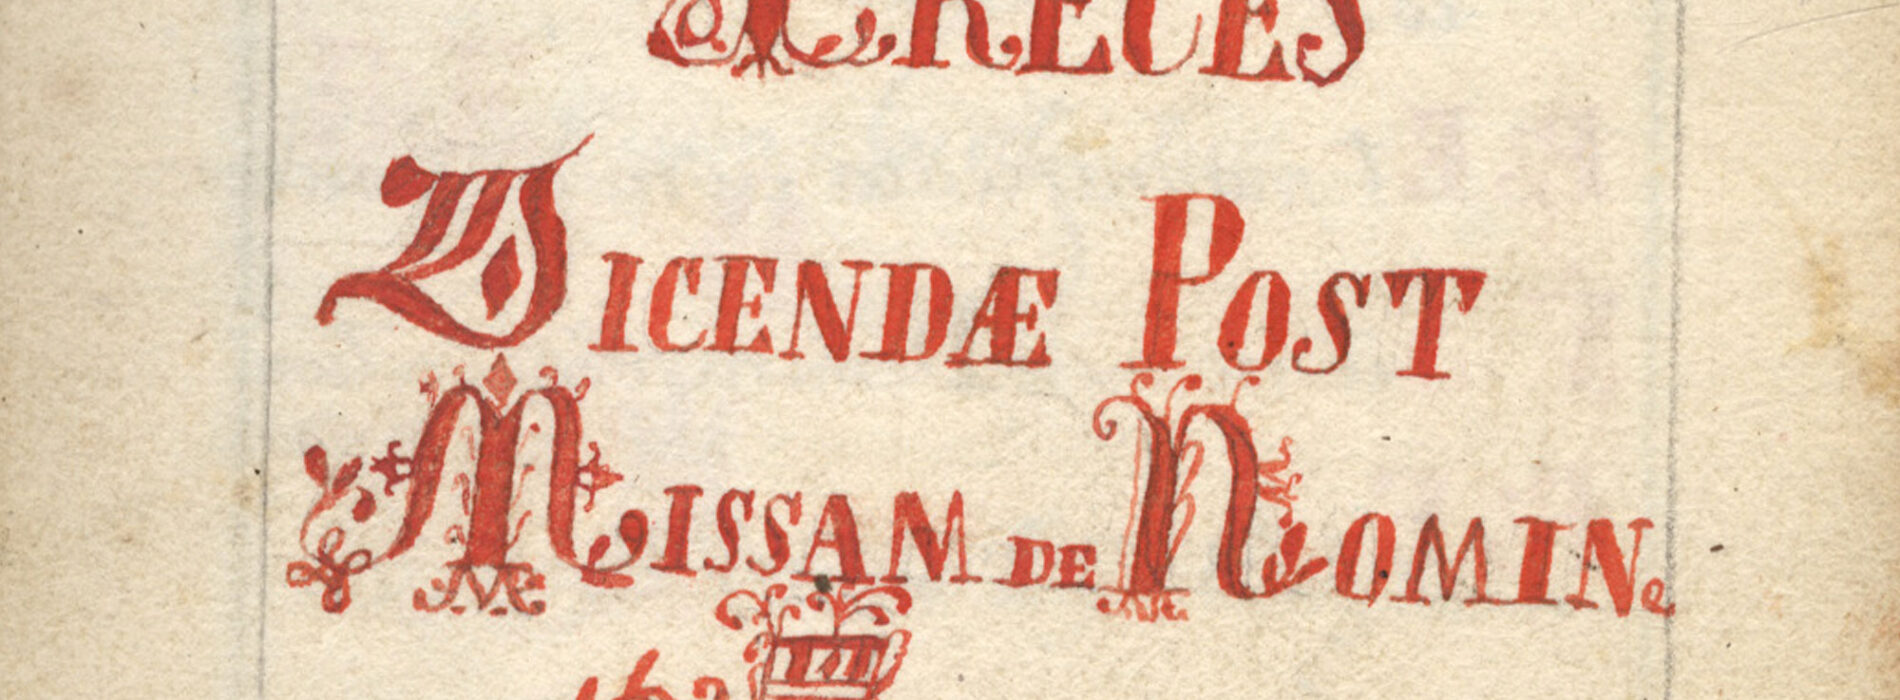 PRECES
DICENDÆ POST
MISSAM DE NOMINe